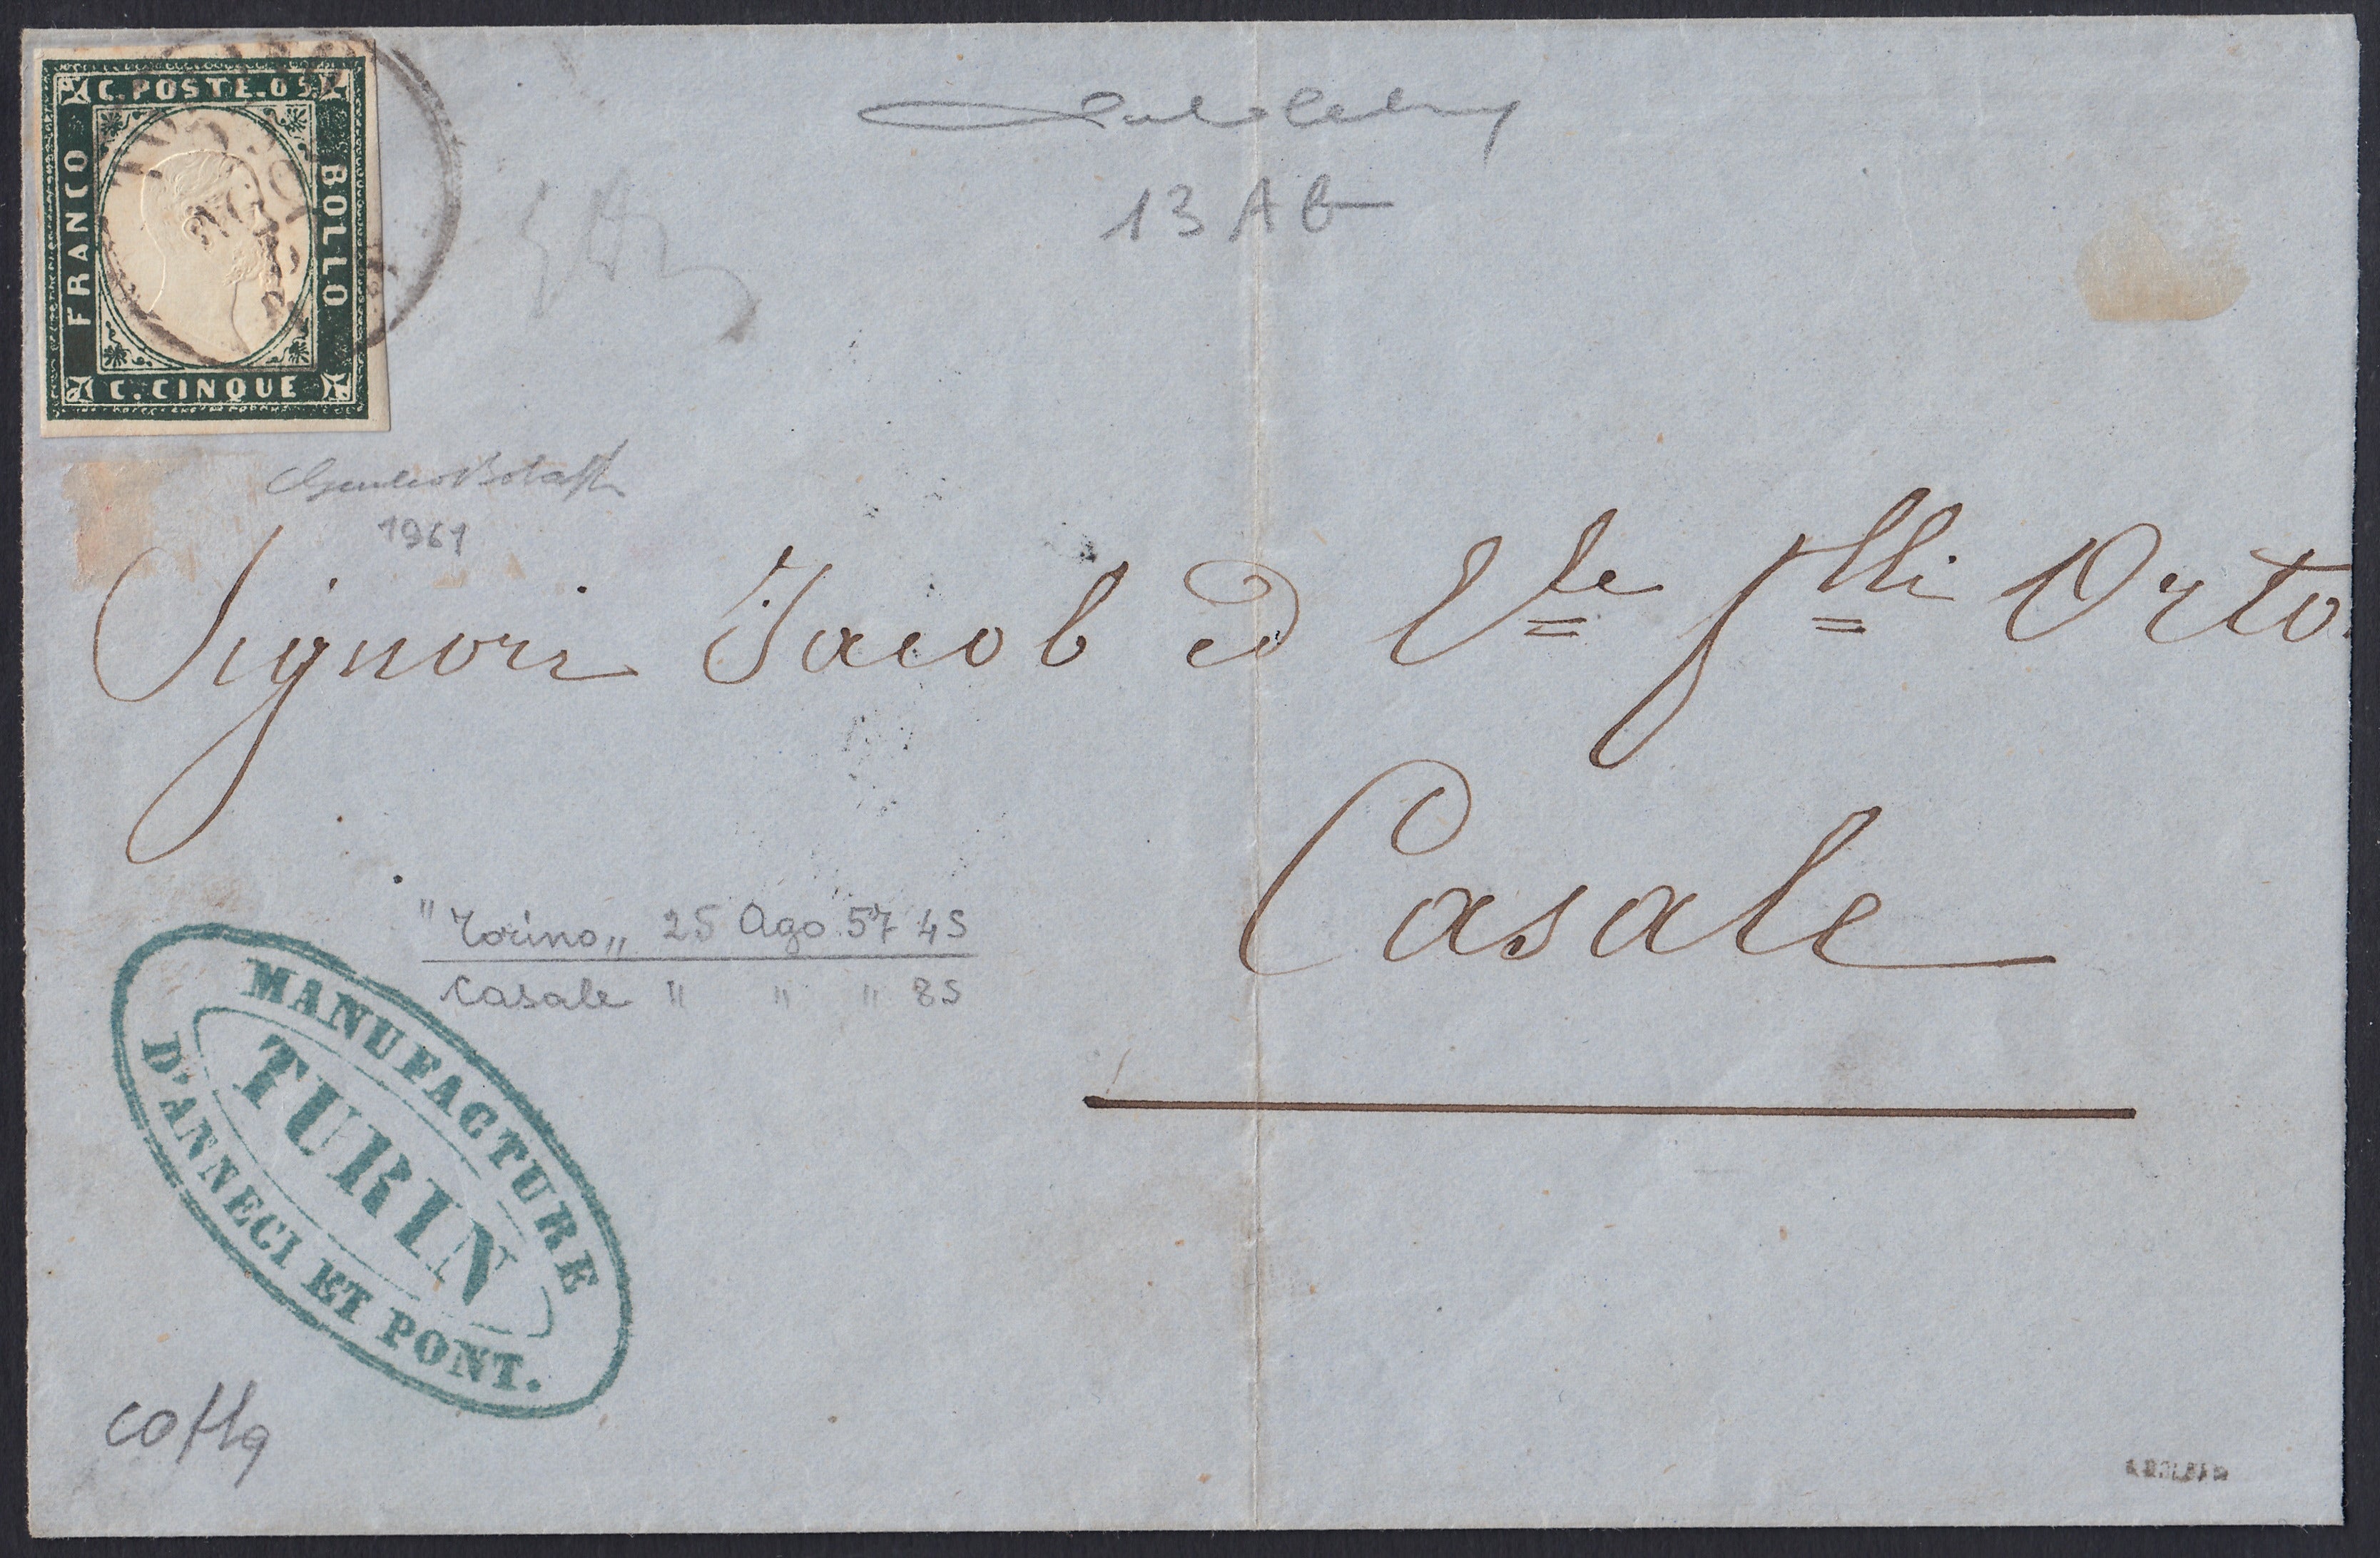 C. POSTE. 05
FRANCO
BOLLO
C. CINQUE
13 A B
Giulio Bolaffi
1961
Signori Jacob ed Vle flli Orto.
Casale
"Torino„ 25 Ago 57 4S
Casale " " " 8S
MANUFACTURE
TURIN
D'ANNECI ET PONT.